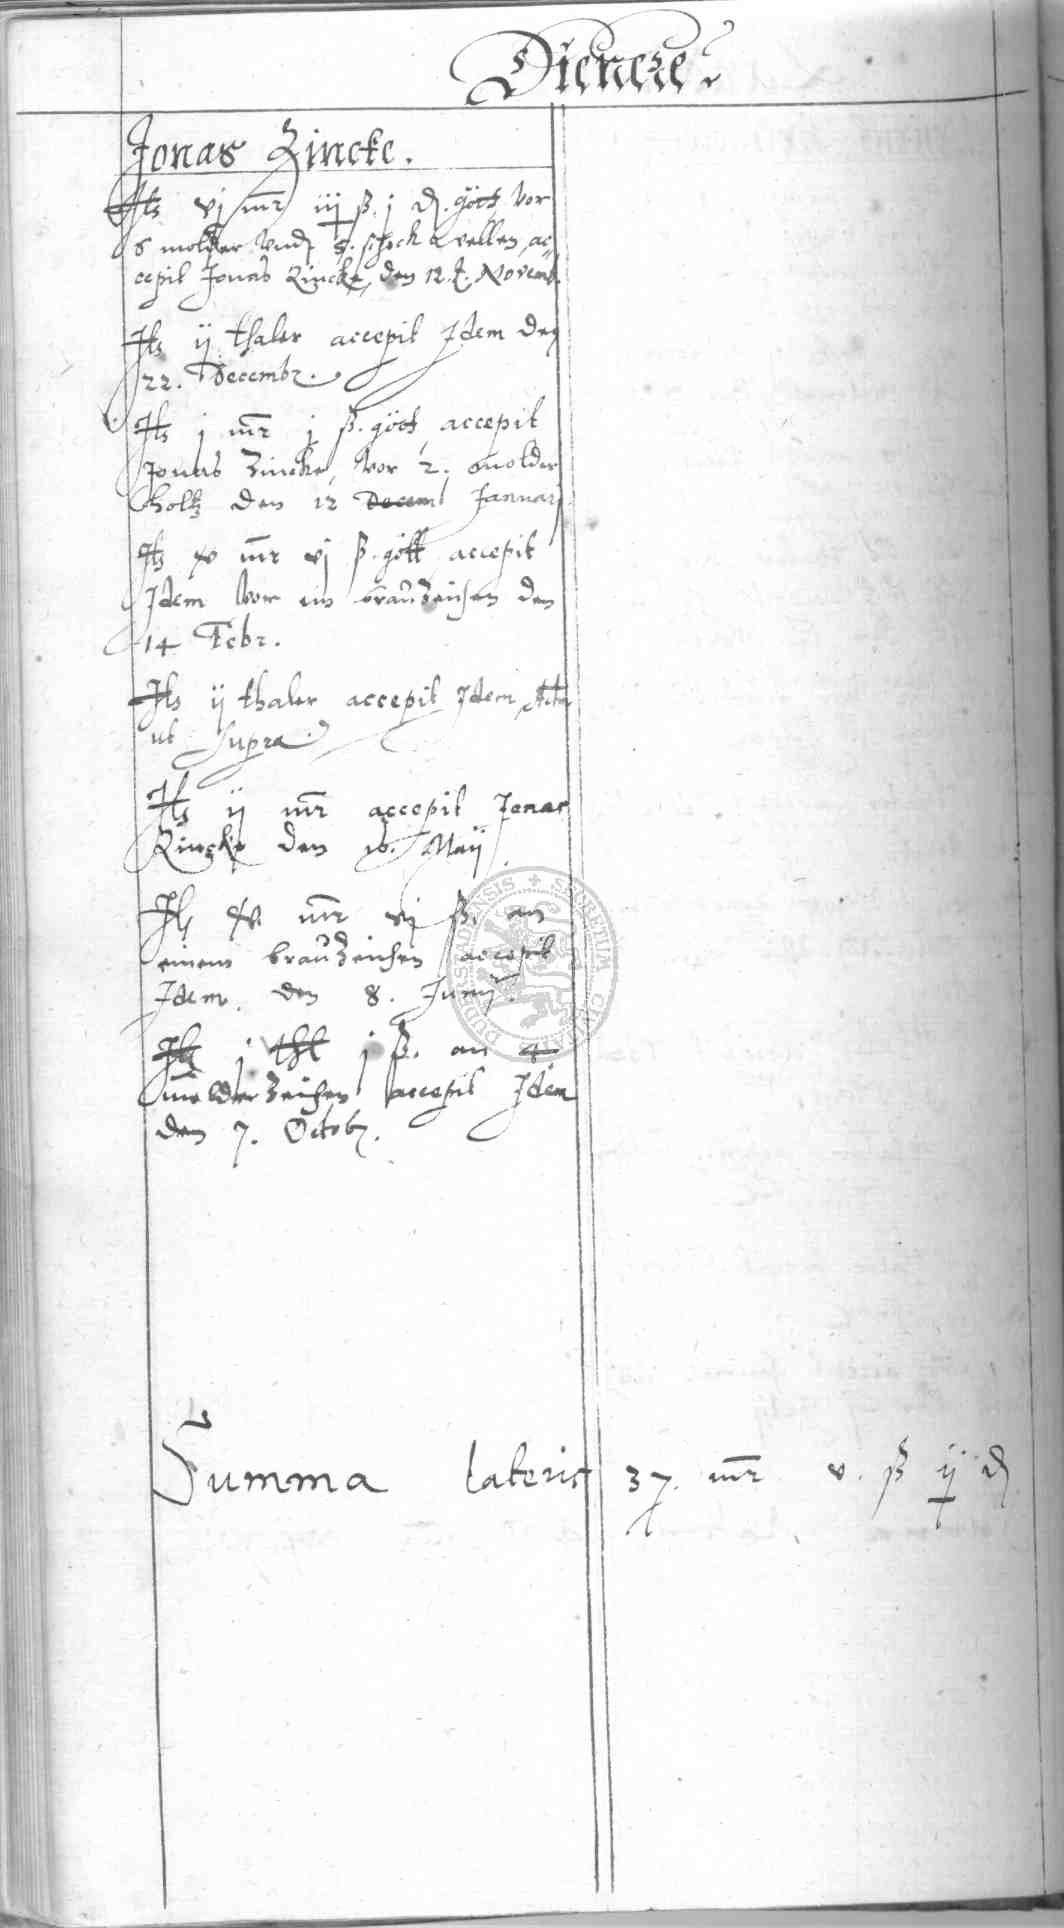 Dienere
Jonas Zincke.
Its vj mr iij ß. j d. gött vor
8 molder vnd 8. schock wellen, ac=
cepit Jonas Zincke, den 12. Novemb.
Its ij thaler accepit Idem den
22. Decembr.
Its j mr j ß. gött accepit
Jonas Zincke, vor 2. molder
holtz den 12 Decem Januarij
Its xv mr vj ß. gött accepit
Idem vor ein brauzeichen den
14 Febr.
Its ij thaler accepit Idem
ut supra
Its ij mr accepit Jonas
Zincke den 16. Maij
Its xv mr vj ß. an
einem brauzeichen accepit
Idem den 8. Junij.
Its j thl j ß. an 4
molderzeichen accepit Idem
den 7. Octob.
SECRETUM CIVITATIS DUDERSTADENSIS
Summa lateris 37. mr v. ß ij d